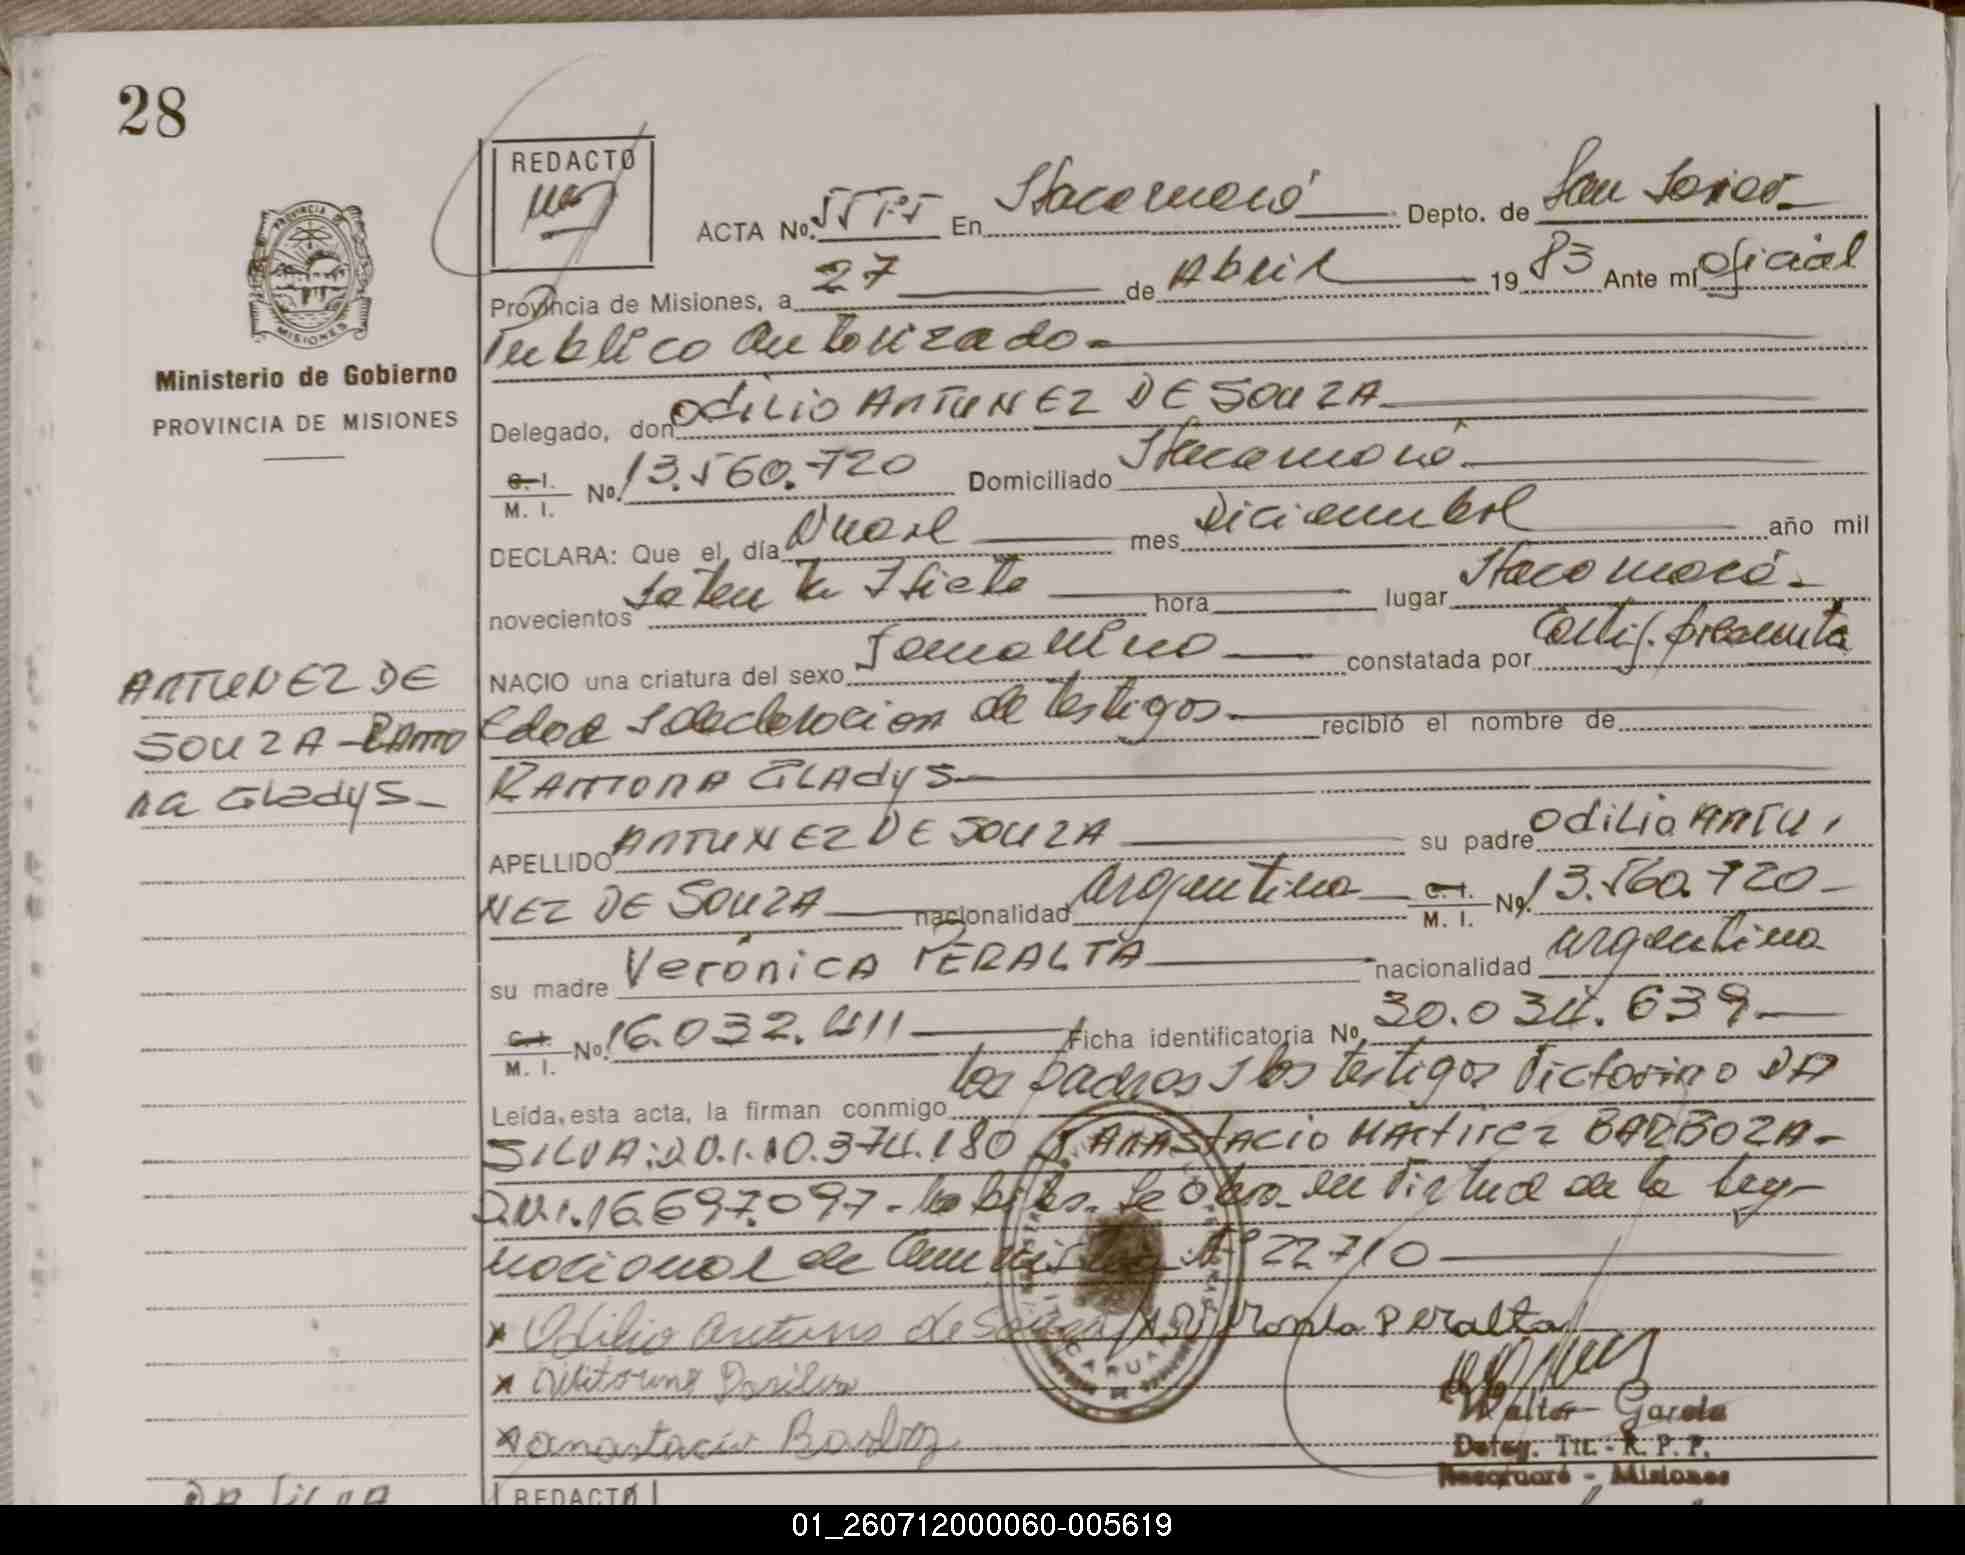 28
REDACTO
ACTA No. En Itacaruaré Depto. de San Javier
Provincia de Misiones, a 27 de Abril 1983 Ante mí Oficial
Publico Autorizado
Delegado, don ODILIO ANTUNEZ DE SOUZA
C. I. M. I. No. 13.560.720 Domiciliado Itacaruaré
DECLARA: Que el día Nueve mes Diciembre año mil
novecientos setenta y siete hora lugar Itacaruaré
NACIO una criatura del sexo Femenino constatada por Certif. presunta
Edad y declaracion de testigos recibió el nombre de
RAMONA GLADYS
APELLIDO ANTUNEZ DE SOUZA su padre ODILIO ANTU
NEZ DE SOUZA nacionalidad argentina C. I. M. I. No. 13.560.720
su madre Verónica PERALTA nacionalidad argentina
C. I. M. I. No. 16.032.411 Ficha identificatoria No. 30.034.639
Leída, esta acta, la firman conmigo los padres y los testigos Victorino DA
SILVA: D.N.I. 10.374.180 y ANASTACIO MARTIREZ BARBOZA
D.N.I. 16.697.097 - habiles. Se Obra en Virtud de la Ley
nacional de Amnistia Nº 22710
x Odilio Antunes de Souza x Veronica Peralta
x Vitorino Dasilva
x anastacio Barboz
Walter Garcia
Deleg. Tit. - R. P. P.
Itacaruaré - Misiones
PROVINCIA DE MISIONES
Ministerio de Gobierno
PROVINCIA DE MISIONES
ANTUNEZ DE
SOUZA - RAMO
NA Gladys
DA SILVA
REDACTO
01_260712000060-005619